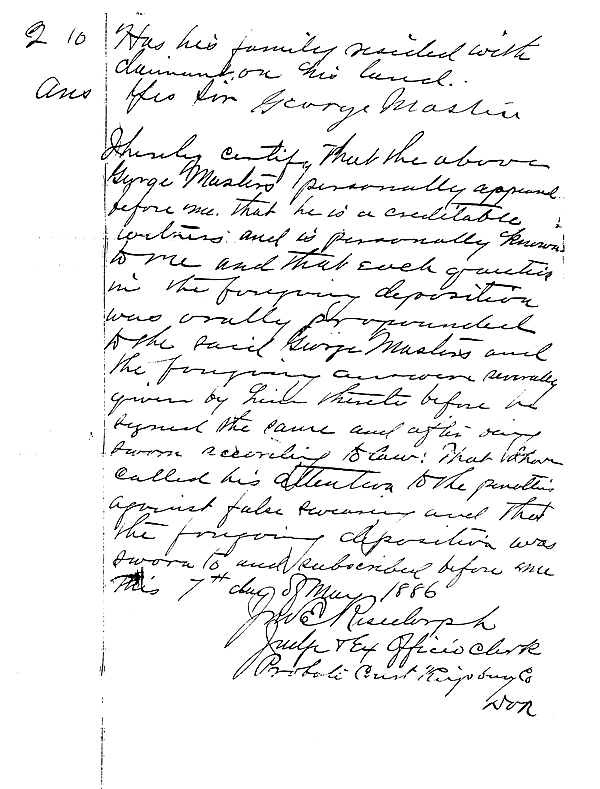 Q 10 Has his family resided with
claimant on his land.
Ans Yes Sir George Masters
I hereby certify that the above
George Masters personally appeared
before me. that he is a creditable
witness and is personally known
to me and that each question
in the foregoing deposition
was orally propounded
to the said George Masters and
the foregoing answers severally
given by him thereto before he
signed the same and after being
sworn according to law: That I have
called his attention to the penalties
against false swearing and that
the foregoing deposition was
sworn to and subscribed before me
this 7th day of May 1886
Jno E Risedorph
Judge & Ex Officio Clerk
Probate Court Kingsbury Co